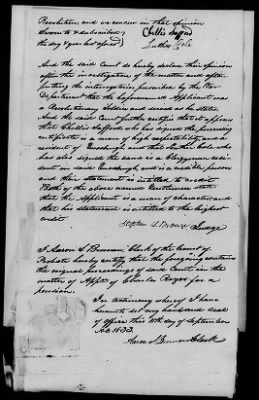 Revolution, and we concur in that opinion
Sworn to & subscribed
the day & year last aforesaid
Chellis Safford
Luther Cole
And the said Court do hereby declare their opinion
after the investigation of the matter and after
putting the interrogatories prescribed by the War
Department that the beforenamed Applicant was
a Revolutionary Soldier and served as he states.
And the said Court further certify that it appears
that Chellis Safford who has signed the preceding
certificate is a man of high respectability, and a
resident of and that Luther Cole who
has also signed the same is a Clergyman resi-
dent in said and is a credible person
and their statement is entitled to credit
Both of the above named Gentlemen state
that the Applicant is a man of character and
that his statement is entitled to the highest
credit.
Stephen S Brown Judge
I Aaron S Beeman, Clerk of the Court of
Probate hereby certify, that the foregoing contains
the original proceedings of said Court in the
matter of Applt of Charles for a
pension.
In testimony whereof I have
hereunto set my hand and seal
of office this 10th day of September
AD. 1833.
Aaron S Beeman Clerk